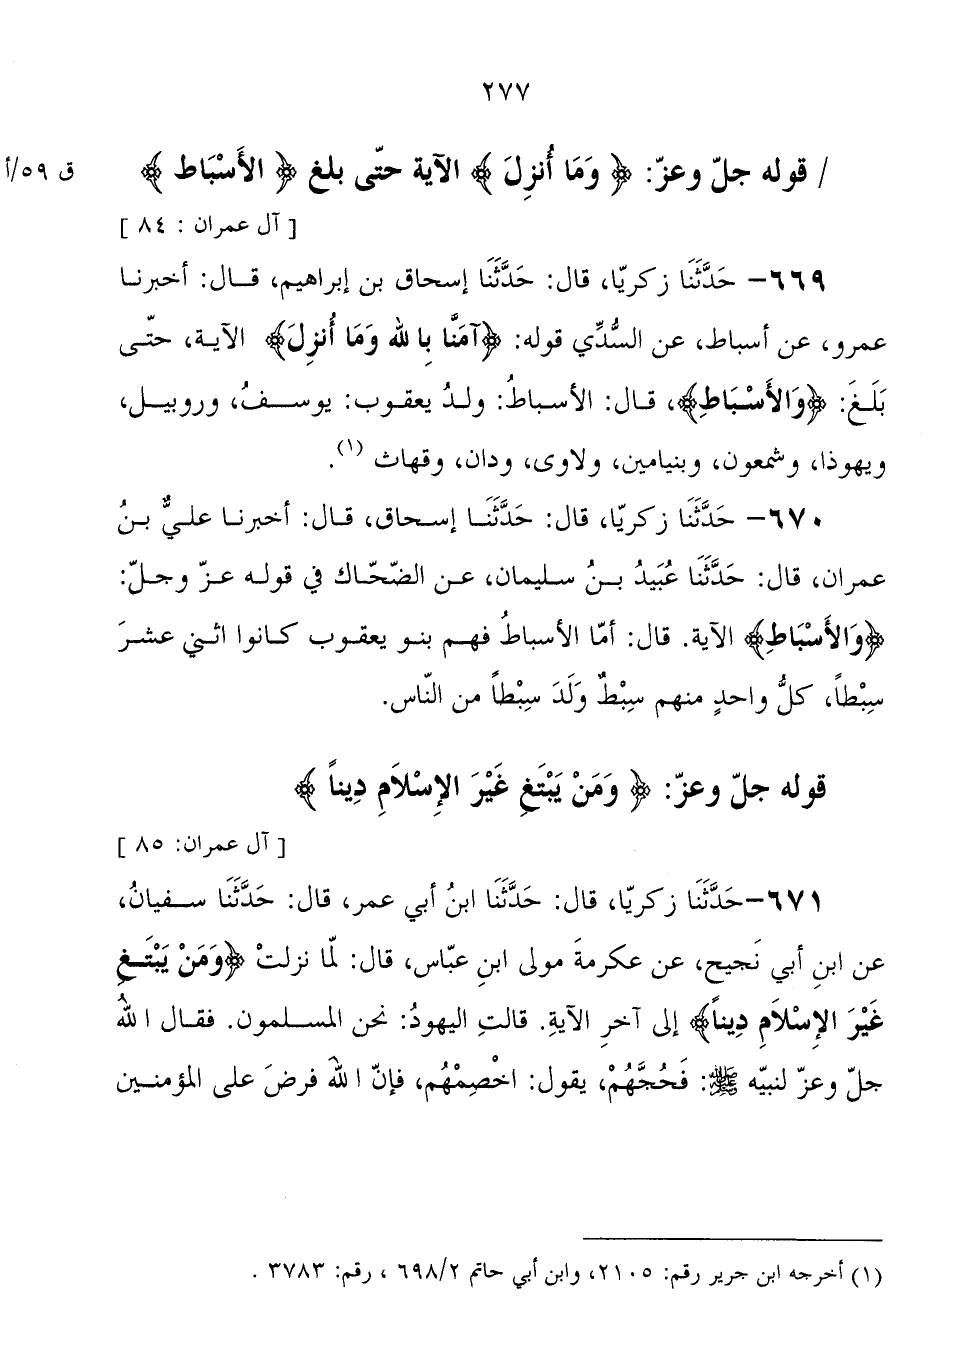 ٢٧٧
/ قوله جلّ وعزّ: ﴿ وَمَا أُنزِلَ ﴾ الآية حتّى بلغ ﴿ الأَسْبَاط ﴾ ق ٥٩/أ
[ آل عمران : ٨٤ ]
٦٦٩– حَدَّثَنَا زكريّا، قال: حَدَّثَنَا إسحاق بن إبراهيم، قال: أخبرنا
عمرو، عن أسباط، عن السُّدِّي قوله: ﴿آمَنَّا بِا لله وَمَا أُنزِلَ﴾ الآية، حتّى
بَلَغَ: ﴿وَالأَسْبَاطِ﴾، قال: الأسباطُ: ولدُ يعقوب: يوسفُ، وروبيل،
ويهوذا، وشمعون، وبنيامين، ولاوى، ودان، وقهاث (١).
٦٧٠– حَدَّثَنَا زكريّا، قال: حَدَّثَنَا إسحاق، قال: أخبرنا عليُّ بنُ
عمران، قال: حَدَّثَنَا عُبَيدُ بنُ سليمان، عن الضّحّاك في قوله عزّ وجلّ:
﴿وَالأَسْبَاطِ﴾ الآية. قال: أمّا الأسباطُ فهم بنو يعقوب كانوا اثني عشرَ
سِبْطاً، كلُّ واحدٍ منهم سِبْطٌ وَلَدَ سِبْطاً من النّاس.
قوله جلّ وعزّ: ﴿ وَمَنْ يَبْتَغِ غَيْرَ الإِسْلَامِ دِيناً ﴾
[ آل عمران: ٨٥ ]
٦٧١–حَدَّثَنَا زكريّا، قال: حَدَّثَنَا ابنُ أبي عمر، قال: حَدَّثَنَا سفيانُ،
عن ابنِ أبي نَجيح، عن عكرمةَ مولى ابنِ عبّاس، قال: لمّا نزلتْ ﴿وَمَنْ يَبْتَغِ
غَيْرَ الإِسْلَامِ دِيناً﴾ إلى آخرِ الآيةِ. قالتِ اليهودُ: نحن المسلمون. فقال ا للهُ
جلّ وعزّ لنبيّه ﷺ: فَحُجَّهُمْ، يقول: اخْصِمْهُم، فإنّ ا للهَ فرضَ على المؤمنين
(١) أخرجه ابن جرير رقم: ٢١٠٥، وابن أبي حاتم ٦٩٨/٢ ، رقم: ٣٧٨٣ .